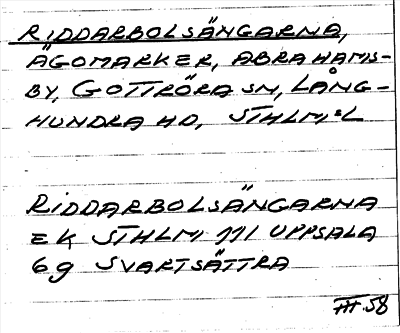 RIDDARBOLSÄNGARNA,
ÄGOMARKER, ABRAHAMS-
BY, GOTTRÖRA SN, LÅNG-
HUNDRA HD, STHLM:L
RIDDARBOLSÄNGARNA
EK STHLM 111 UPPSALA
6g SVARTSÄTTRA
58